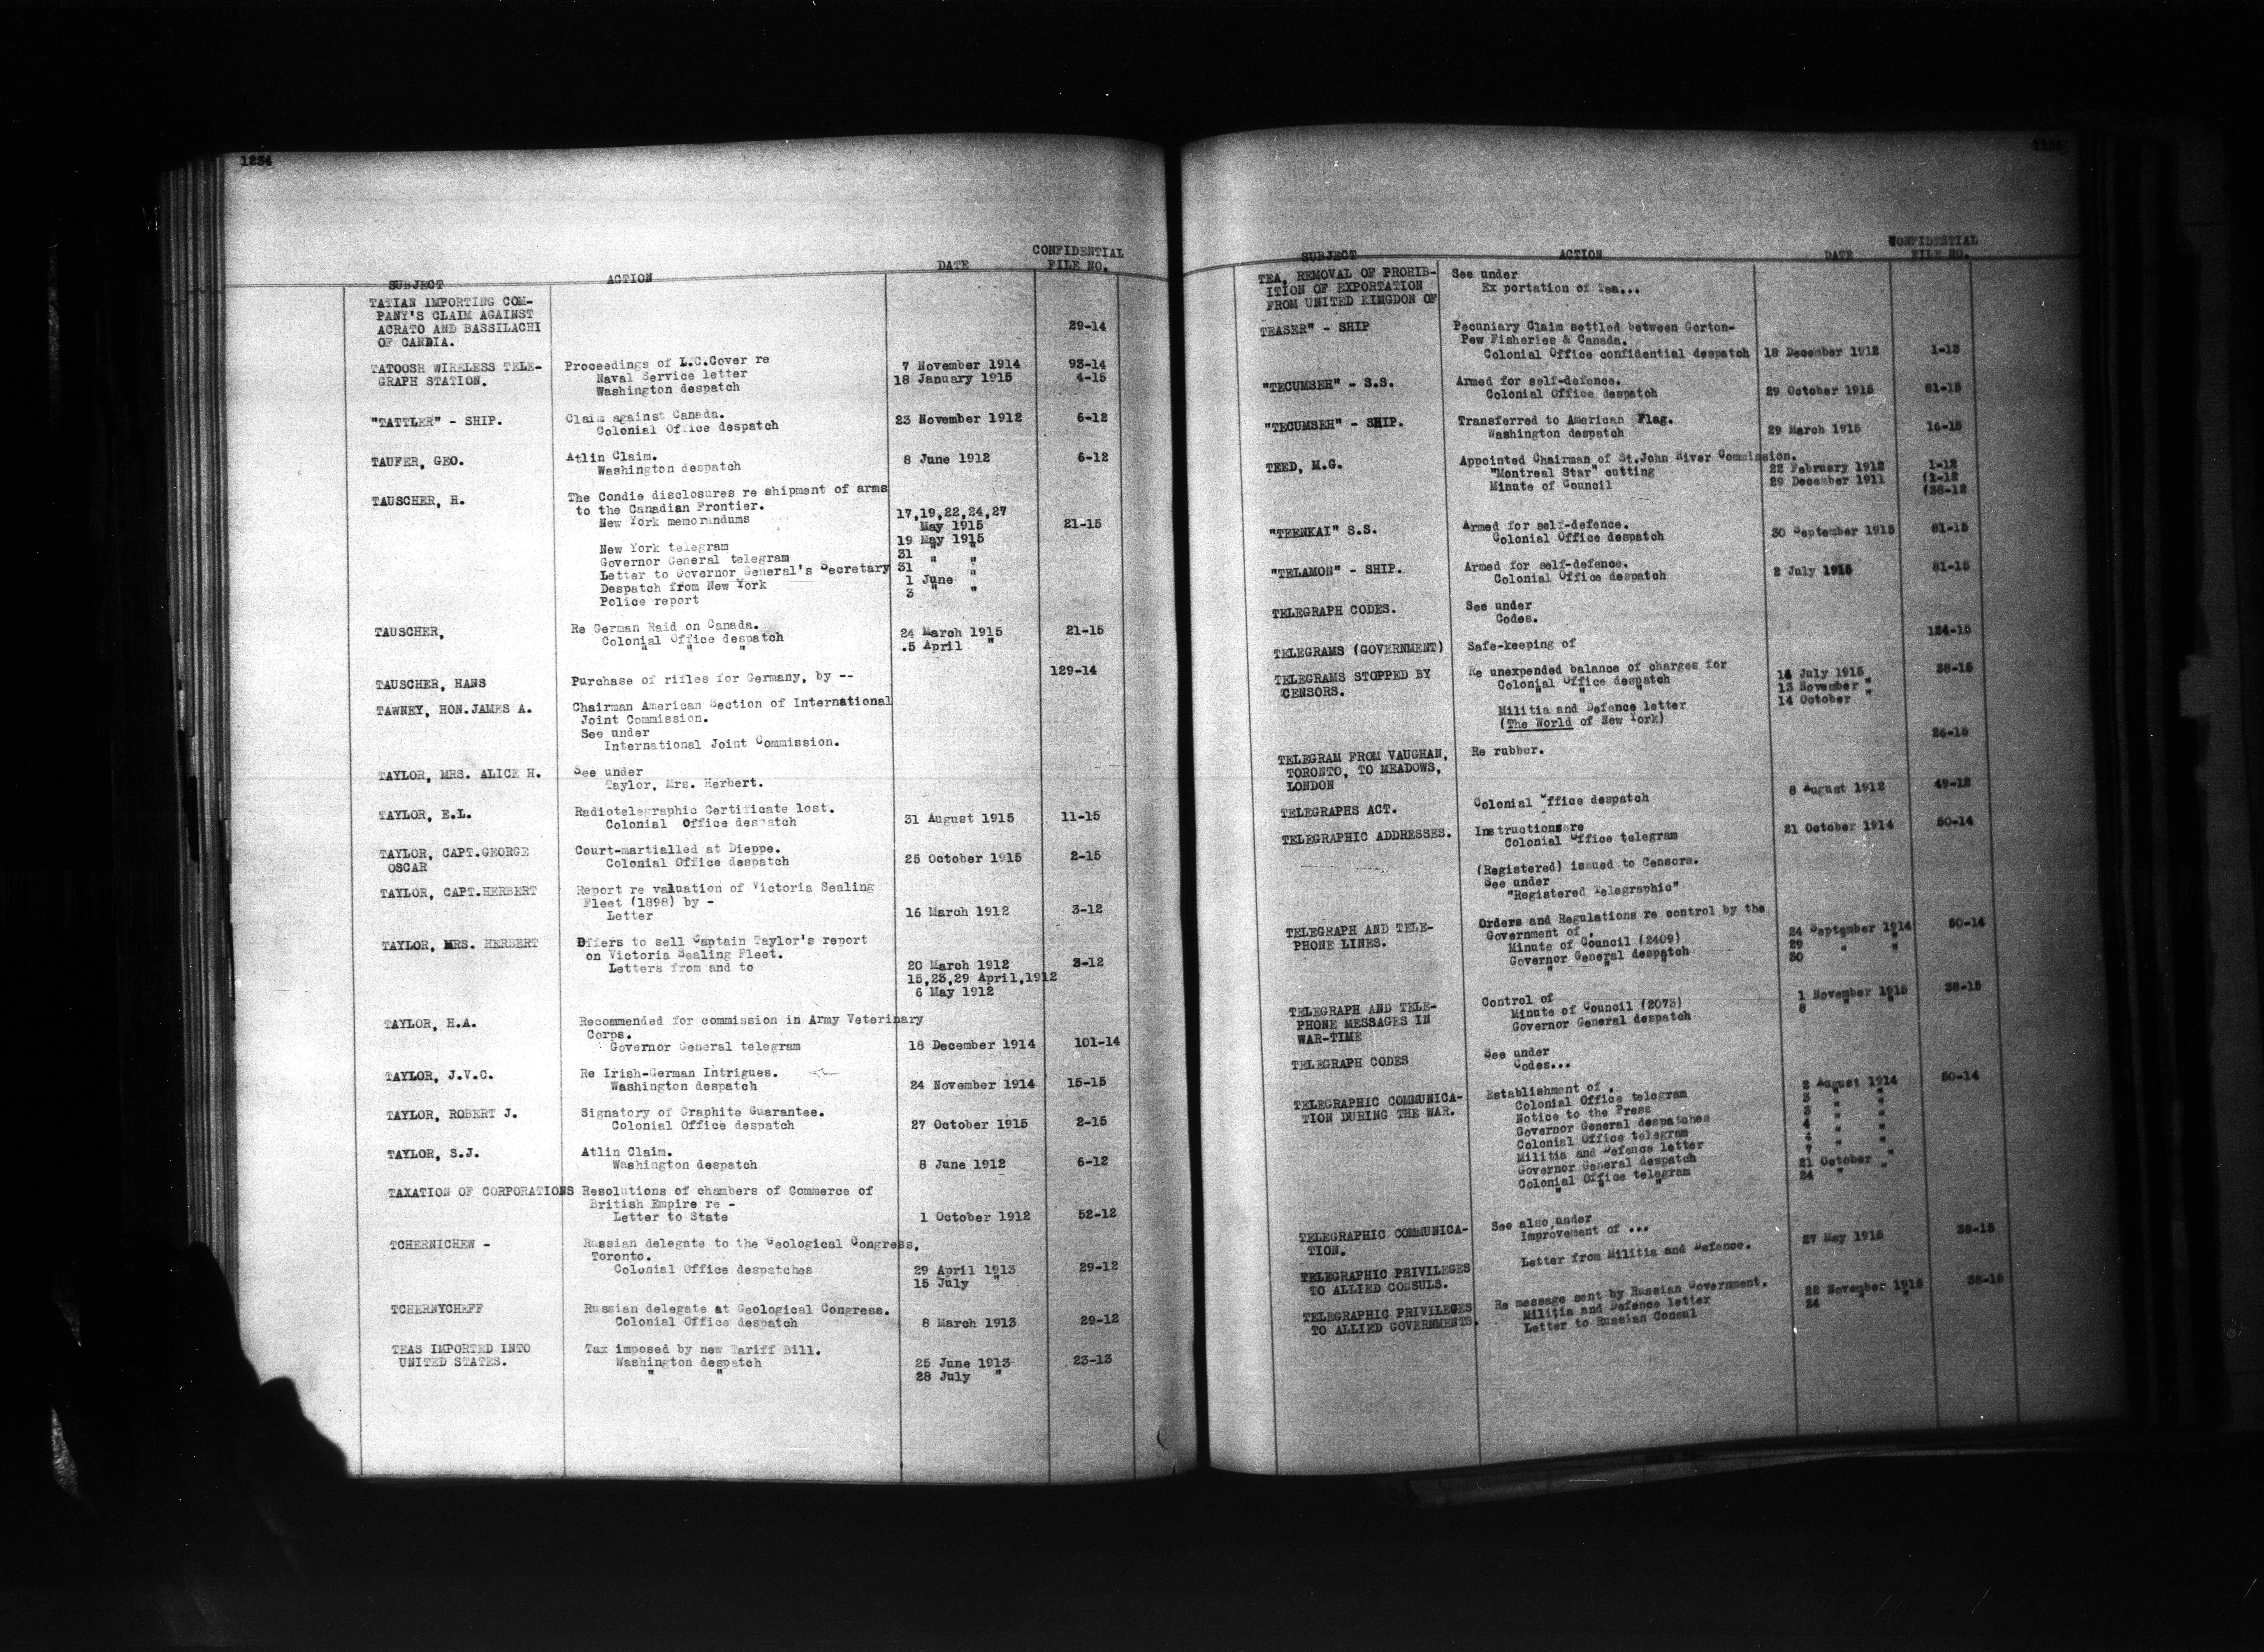 1234
SUBJECT ACTION DATE CONFIDENTIAL FILE NO.
TATIAN IMPORTING COM-
PANY'S CLAIM AGAINST
ACRATO AND BASSILACHI 29-14
OF CANDIA.
TATOOSH WIRELESS TELE- Proceedings of L.C.Cover re 7 November 1914 93-14
GRAPH STATION. Naval Service letter 18 January 1915 4-15
Washington despatch
"TATTLER" - SHIP. Claim against Canada. 23 November 1912 6-12
Colonial Office despatch
TAUFER, GEO. Atlin Claim. 8 June 1912 6-12
Washington despatch
TAUSCHER, H. The Condie disclosures re shipment of arms
to the Canadian Frontier. 17,19,22,24,27
New York memorandums May 1915 21-15
New York telegram 19 May 1915
Governor General telegram 31 " "
Letter to Governor General's Secretary 31 "
Despatch from New York 1 June
Police report 3 " "
TAUSCHER, Re German Raid on Canada. 24 March 1915 21-15
Colonial Office despatch .5 April "
" " "
TAUSCHER, HANS Purchase of rifles for Germany, by -- 129-14
TAWNEY, HON.JAMES A. Chairman American Section of International
Joint Commission.
See under
International Joint Commission.
TAYLOR, MRS. ALICE H. See under
Taylor, Mrs. Herbert.
TAYLOR, E.L. Radiotelegraphic Certificate lost.
Colonial Office despatch 31 August 1915 11-15
TAYLOR, CAPT.GEORGE Court-martialled at Dieppe.
OSCAR Colonial Office despatch 25 October 1915 2-15
TAYLOR, CAPT.HERBERT Report re valuation of Victoria Sealing
Fleet (1898) by -
Letter 16 March 1912 3-12
TAYLOR, MRS. HERBERT Offers to sell Captain Taylor's report
on Victoria Sealing Fleet.
Letters from and to 20 March 1912 3-12
15,23,29 April,1912
6 May 1912
TAYLOR, H.A. Recommended for commission in Army Veterinary
Corps.
Governor General telegram 18 December 1914 101-14
TAYLOR, J.V.C. Re Irish-German Intrigues.
Washington despatch 24 November 1914 15-15
TAYLOR, ROBERT J. Signatory of Graphite Guarantee.
Colonial Office despatch 27 October 1915 2-15
TAYLOR, S.J. Atlin Claim.
Washington despatch 8 June 1912 6-12
TAXATION OF CORPORATIONS Resolutions of chambers of Commerce of
British Empire re -
Letter to State 1 October 1912 52-12
TCHERNICHEW - Russian delegate to the Geological Congress,
Toronto.
Colonial Office despatches 29 April 1913 29-12
15 July "
TCHERNYCHEFF Russian delegate at Geological Congress.
Colonial Office despatch 8 March 1913 29-12
TEAS IMPORTED INTO Tax imposed by new Tariff Bill.
UNITED STATES. Washington despatch 25 June 1913 23-13
" " 28 July "
1235
SUBJECT ACTION DATE CONFIDENTIAL FILE NO.
TEA, REMOVAL OF PROHIB- See under
ITION OF EXPORTATION Ex portation of Tea...
FROM UNITED KINGDON OF
TEASER" - SHIP Pecuniary Claim settled between Gorton-
Pew Fisheries & Canada.
Colonial Office confidential despatch 18 December 1912 1-13
"TECUMSEH" - S.S. Armed for self-defence.
Colonial Office despatch 29 October 1915 81-15
"TECUMSEH" - SHIP. Transferred to American Flag.
Washington despatch 29 March 1915 16-15
TEED, M.G. Appointed Chairman of St.John River Commission.
"Montreal Star" cutting 22 February 1912 1-12
Minute of Council 29 December 1911 (1-12
(38-12
"TEENKAI" S.S. Armed for self-defence.
Colonial Office despatch 30 September 1915 81-15
"TELAMON" - SHIP. Armed for self-defence.
Colonial Office despatch 2 July 1915 81-15
TELEGRAPH CODES. See under
Codes.
TELEGRAMS (GOVERNMENT) Safe-keeping of 124-15
TELEGRAMS STOPPED BY Re unexpended balance of charges for 38-15
CENSORS. Colonial Office despatch 14 July 1915
" " " 13 November "
Militia and Defence letter 14 October "
(The World of New York)
TELEGRAM FROM VAUGHAN, Re rubber. 26-15
TORONTO, TO MEADOWS,
LONDON
TELEGRAPHS ACT. Colonial Office despatch 8 August 1912 49-12
TELEGRAPHIC ADDRESSES. Instructions re
Colonial Office telegram 21 October 1914 50-14
(Registered) issued to Censors.
See under
"Registered Telegraphic"
TELEGRAPH AND TELE- Orders and Regulations re control by the
PHONE LINES. Government of.
Minute of Council (2409) 24 September 1914 50-14
Governor General despatch 29 " "
" " " 30
TELEGRAPH AND TELE- Control of
PHONE MESSAGES IN Minute of Council (2073) 1 November 1915 38-15
WAR-TIME Governor General despatch 8 " "
TELEGRAPH CODES See under
Codes...
TELEGRAPHIC COMMUNICA- Establishment of.
TION DURING THE WAR. Colonial Office telegram 2 August 1914 50-14
Notice to the Press 3 " "
Governor General despatches 3 " "
Colonial Office telegram 4 " "
Militia and Defence letter 4 " "
Governor General despatch 7
Colonial Office telegram 21 October "
" " " 24 " "
TELEGRAPHIC COMMUNICA- See also under
TION. Improvement of ...
TELEGRAPHIC PRIVILEGES Letter from Militia and Defence. 27 May 1915 38-15
TO ALLIED CONSULS.
TELEGRAPHIC PRIVILEGES Re message sent by Russian Government.
TO ALLIED GOVERNMENTS. Militia and Defence letter 22 November 1915 38-15
Letter to Russian Consul 24 " "